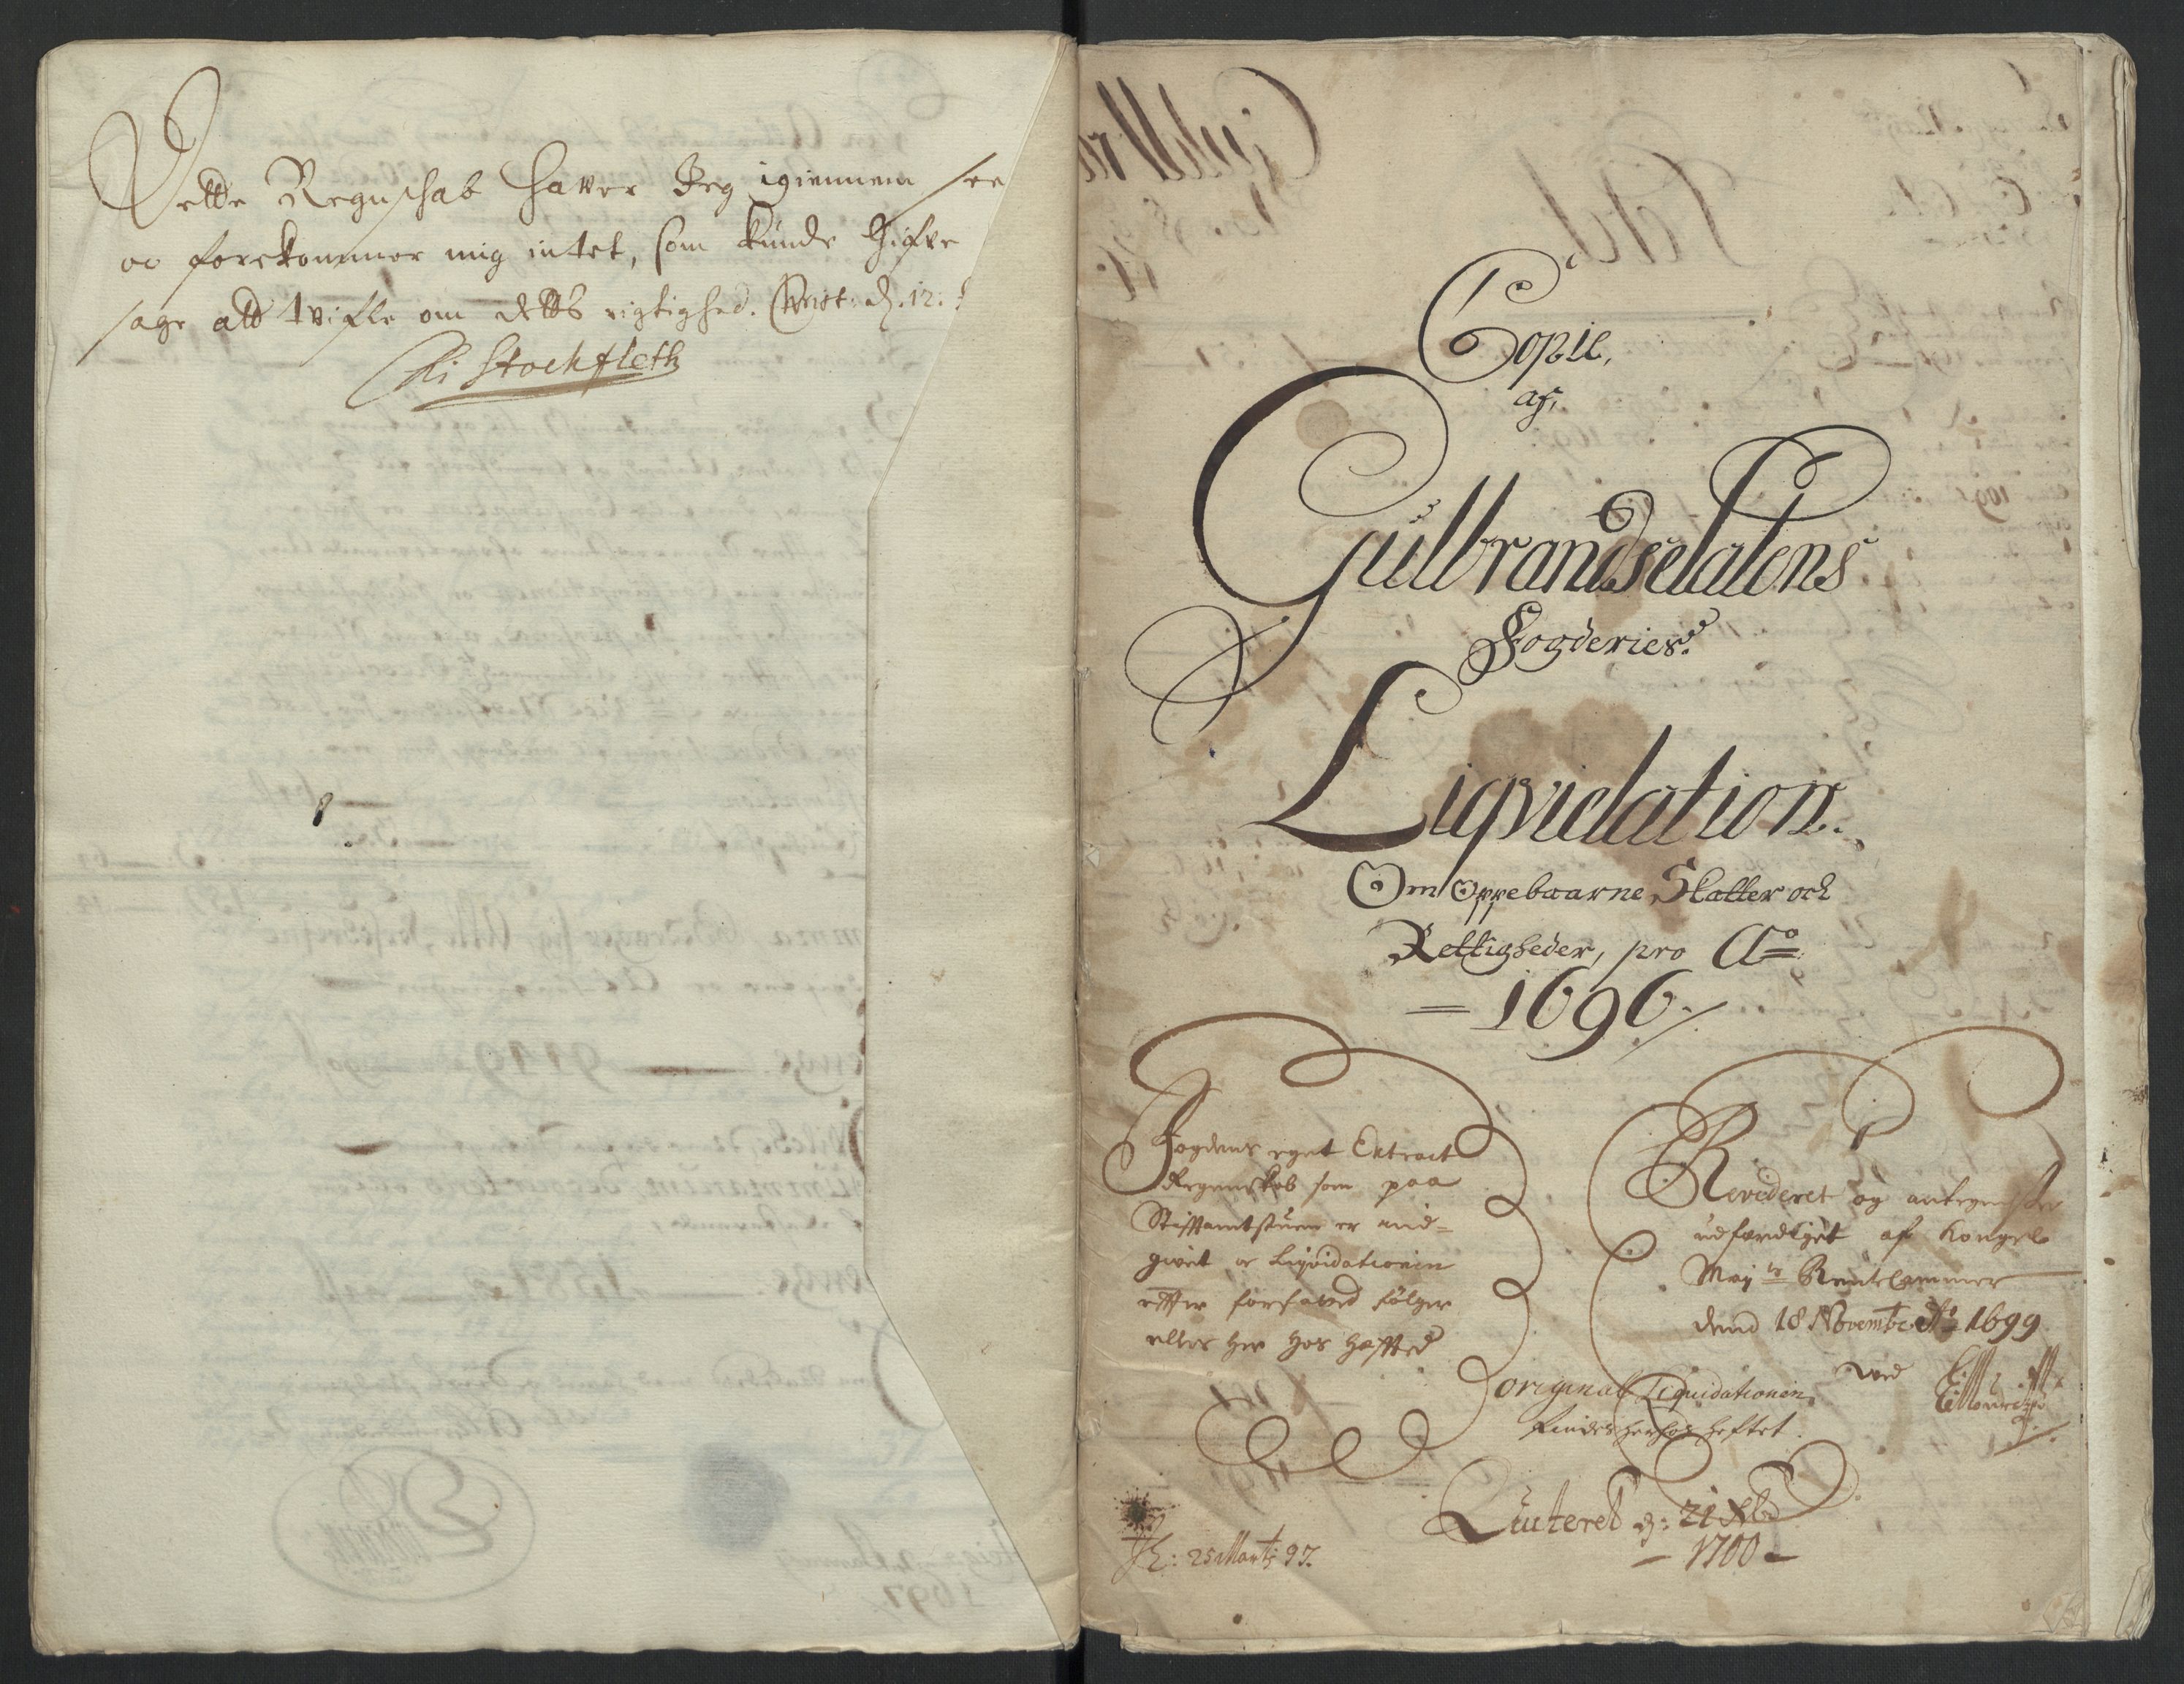 Dette Regnschab haver Jeg igiennem see
oc forekommer mig intet, som kunde Gifve
sage att tvifle om detts rigtighed. Christ: d. 12:
Stockfleth
Copie,
af,
Gulbrandsdalens
Fogderies
Liqvidation.
Om Oppebaarne Skatter och
Rettigheder, pro Ao
1696.
Fogdens eget Extract
Regenskab som paa
Stiftamtstuen er ind-
givet oc Liqvidationen
efter forfatted følger
ellers her hos hæffted
Revideret og antegnelser
udfærdiget af Kongel
May:ts Rentecammer
dend 18 Novemb: Ao 1699
ved
original Liquidationen
findes herhos heftet.
Qviteret d: 21 Xb
1700
25 Martj 97.